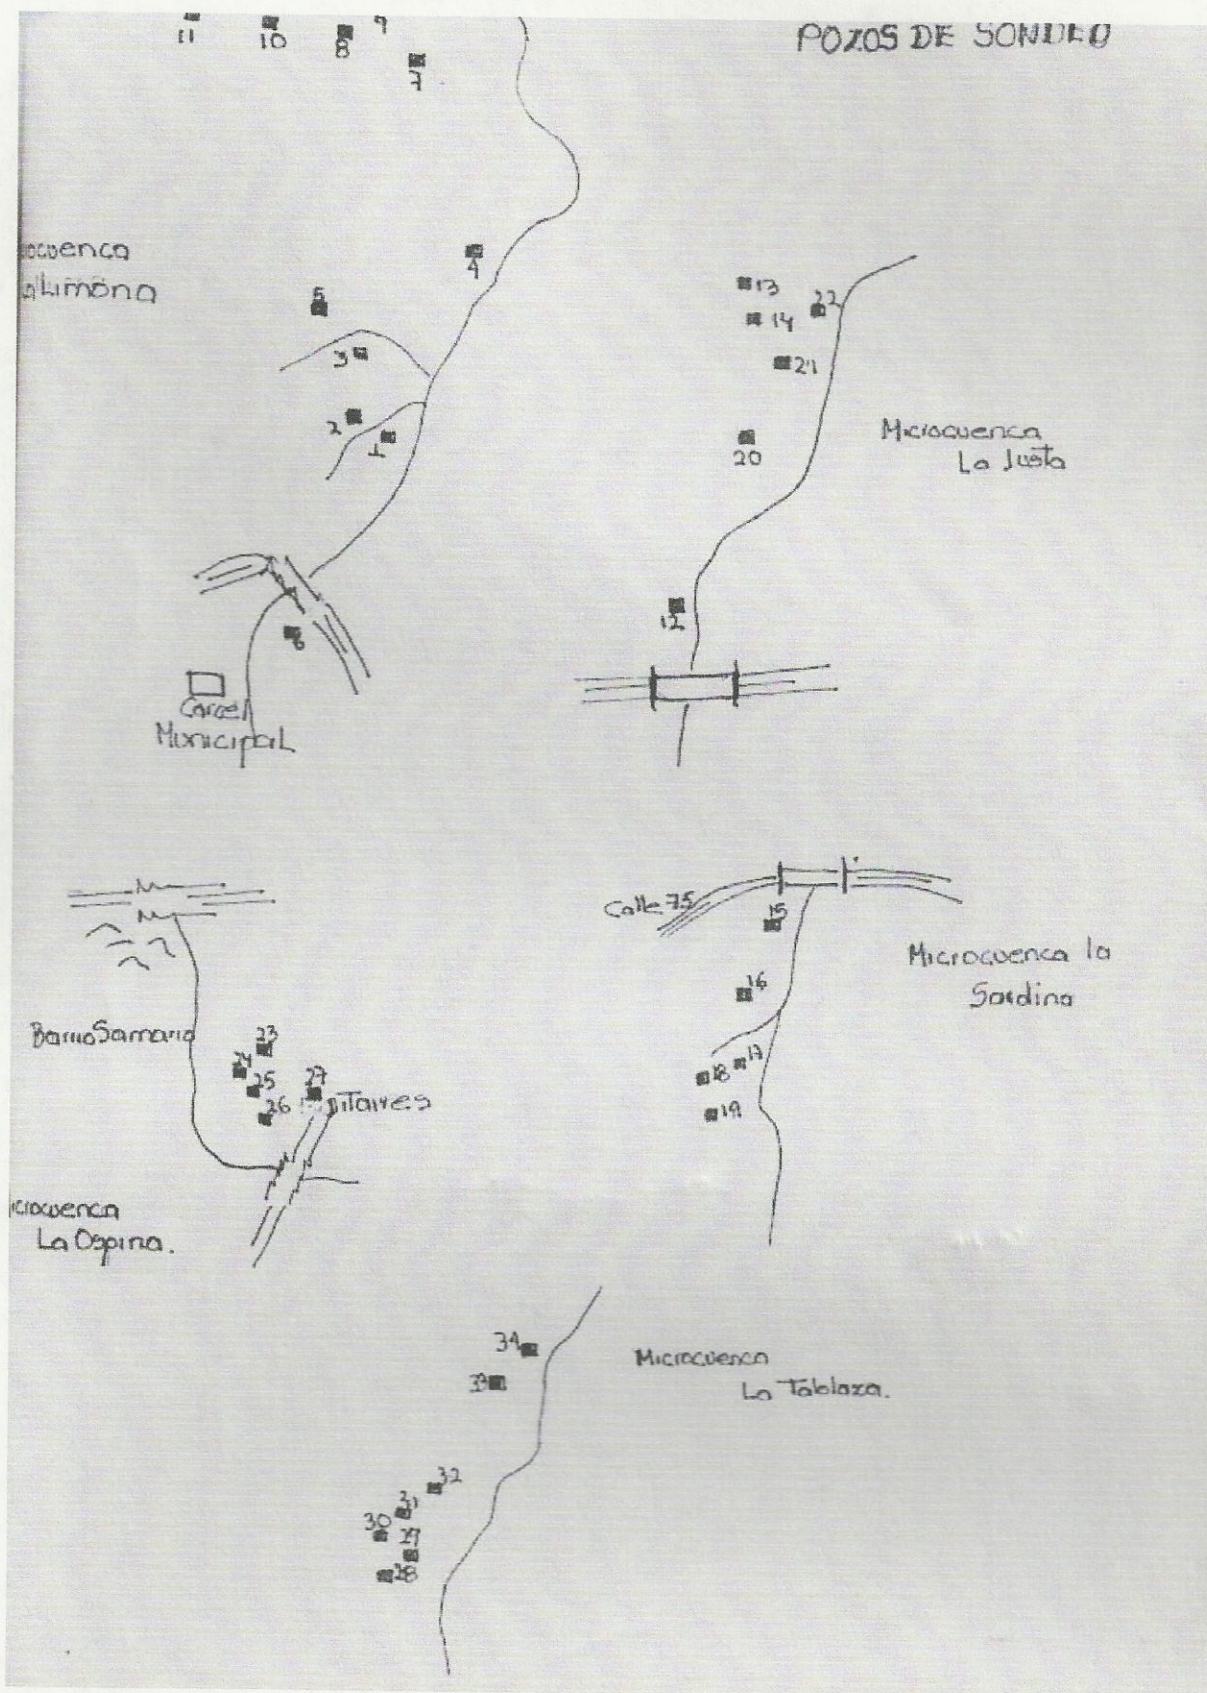 11
10
8
9
7
POZOS DE SONDEO
ocuenca
La Limona
4
5
3
2
1
6
Carcel
Municipal
13
14
22
21
20
Microcuenca
La Justa
12
Calle 75
15
16
17
18
19
Microcuenca la
Sardina
Barrio Samaria
23
24
25
26
27
Militares
icrocuenca
La Ospina.
34
33
32
31
30
29
28
Microcuenca
La Tablaza.